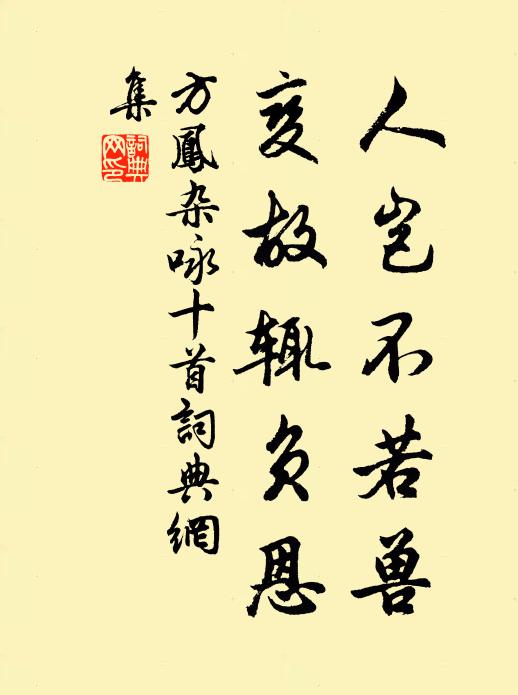 人岂不若兽
变故辄负恩
方鳳杂咏十首詞典網
集
詞典
网印